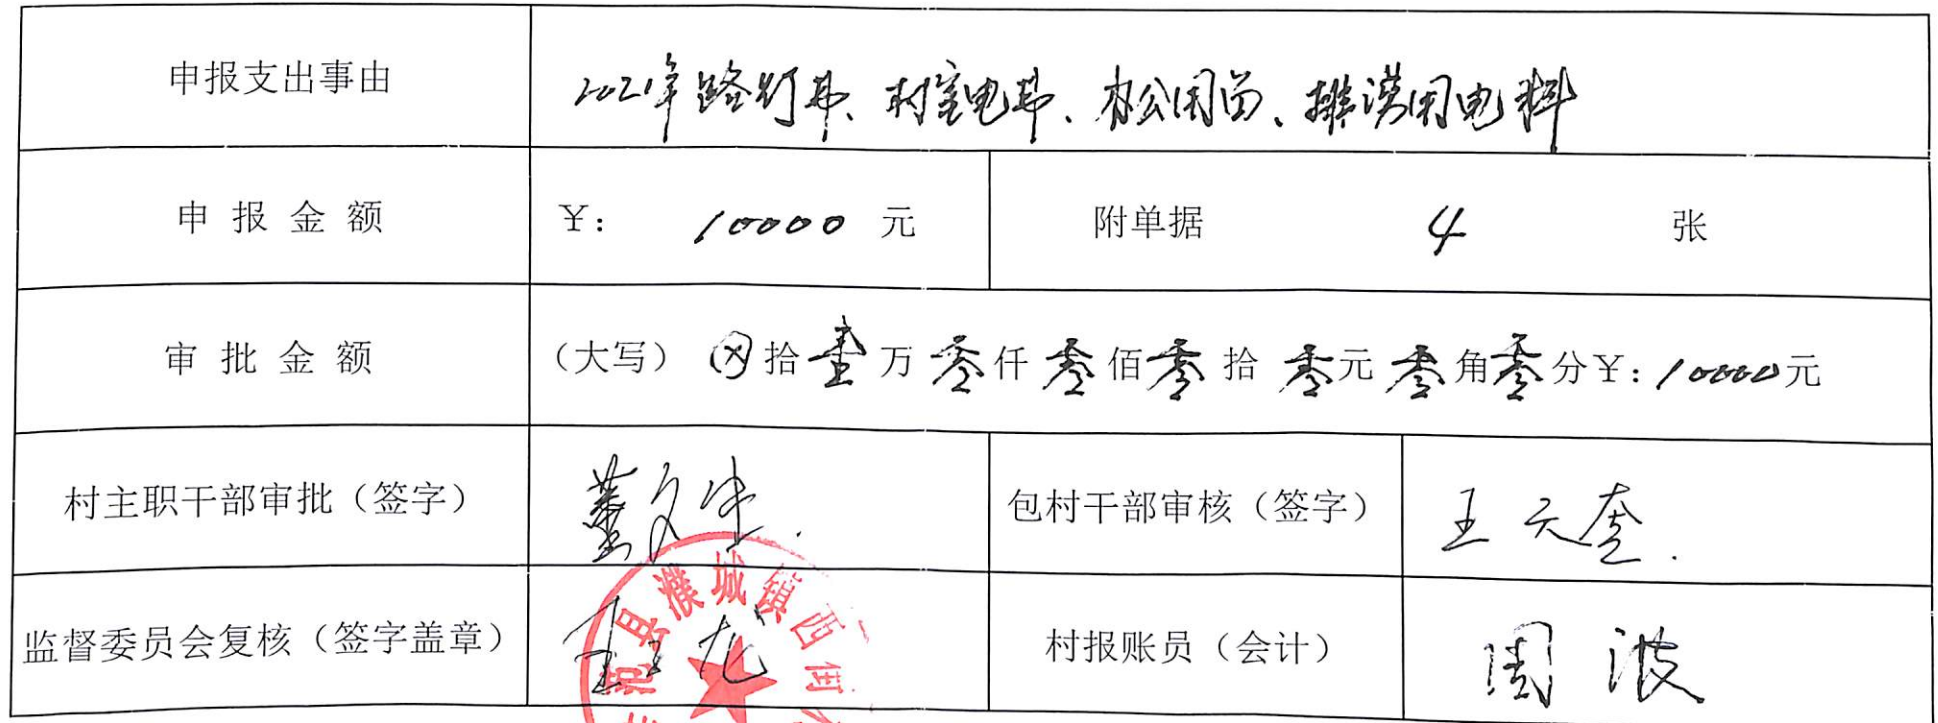 申报支出事由 2021年路灯费、村室电费、办公用品、排涝用电料
申报金额 ¥: 10000 元 附单据 4 张
审批金额 (大写) ⊗拾壹万零仟零佰零拾零元零角零分¥: 10000元
村主职干部审批(签字) 董文 包村干部审核(签字) 王天奎
监督委员会复核(签字盖章) 村报账员(会计) 周波
县濮城镇西街